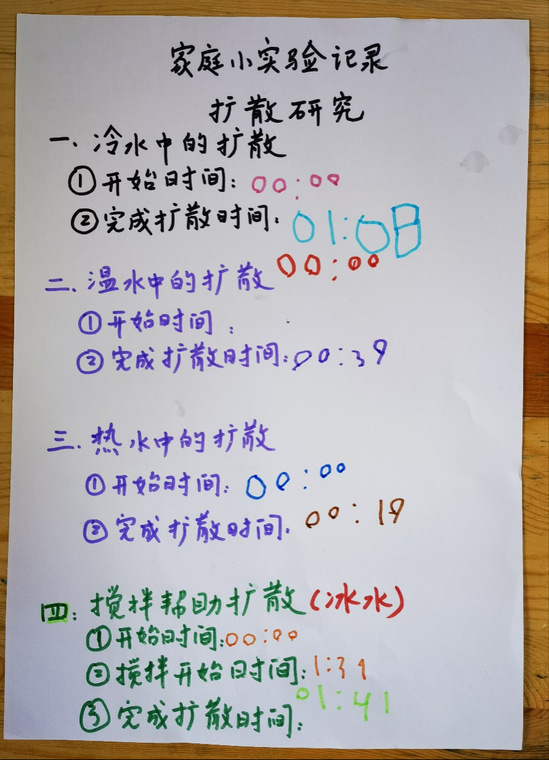 家庭小实验记录
扩散研究
一、冷水中的扩散
①开始时间：00:00
②完成扩散时间：01:08
二、温水中的扩散 00:00
①开始时间：
②完成扩散时间：00:39
三、热水中的扩散
①开始时间：00:00
②完成扩散时间：00:19
四：搅拌帮助扩散（冰水）
①开始时间：00:00
②搅拌开始时间：1:39
③完成扩散时间：01:41